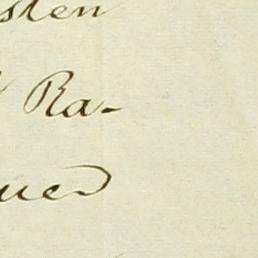 sten
Ra-
ued